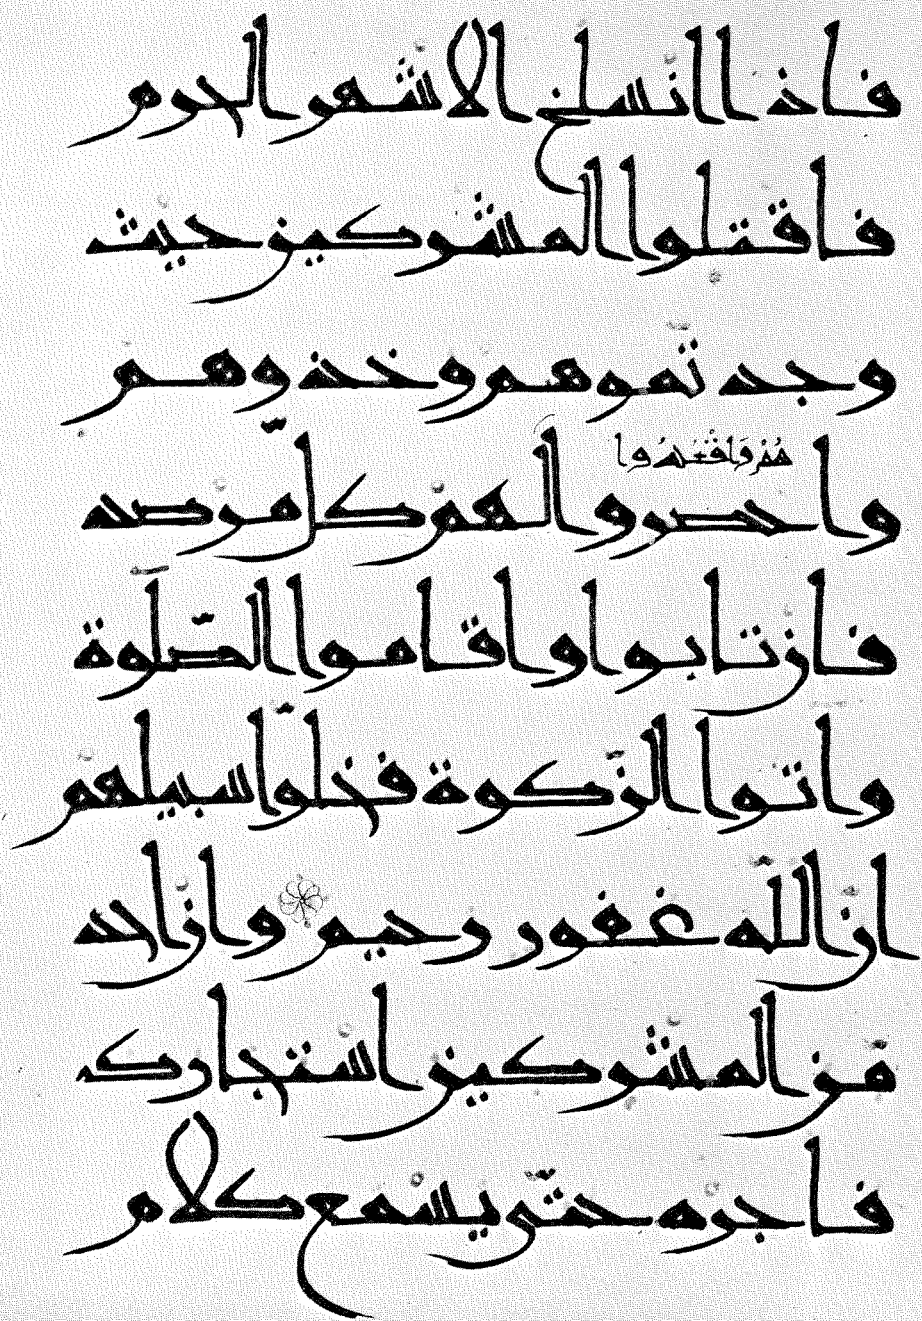 فاذا انسلخ الاشهر الحرم
فاقتلوا المشركين حيث
وجدتموهم وخذوهم
هُمْ وَاقْعُدُوا
واحصروا لهم كلّ مرصد
فان تابوا واقاموا الصّلوة
واتوا الزّكوة فخلّوا سبيلهم
انّ اللّه غفور رحيم وان احد
من المشركين استجارك
فاجره حتّى يسمع كلام